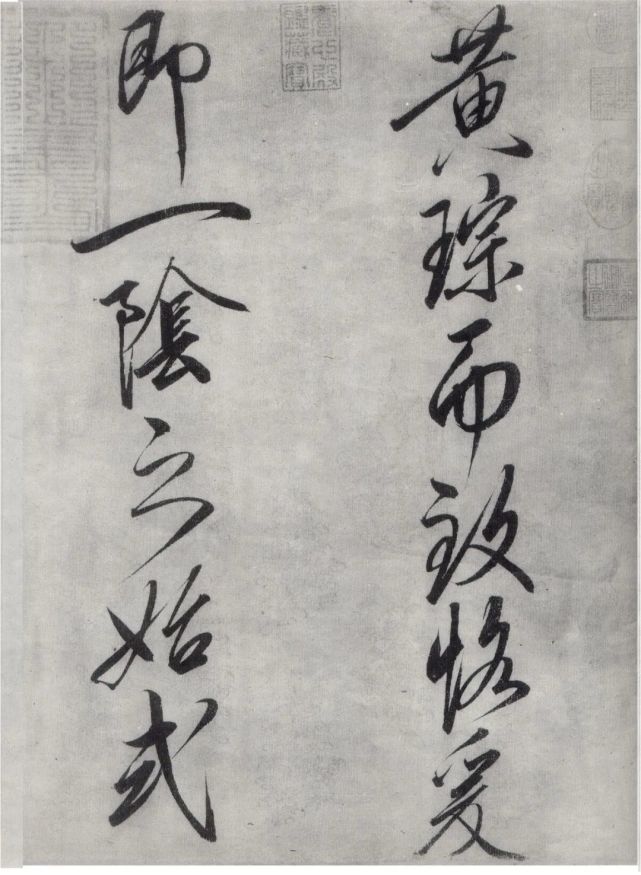 黃琮而致恪爰
即一陰之始式